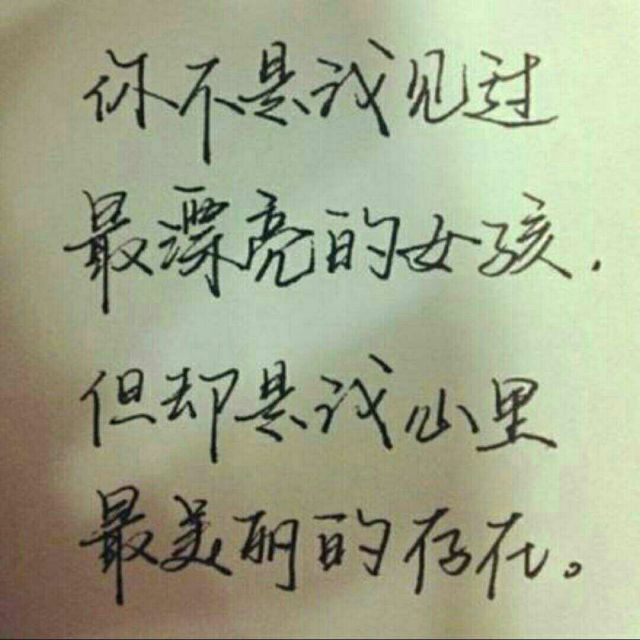 你不是我见过
最漂亮的女孩.
但却是我心里
最美丽的存在。